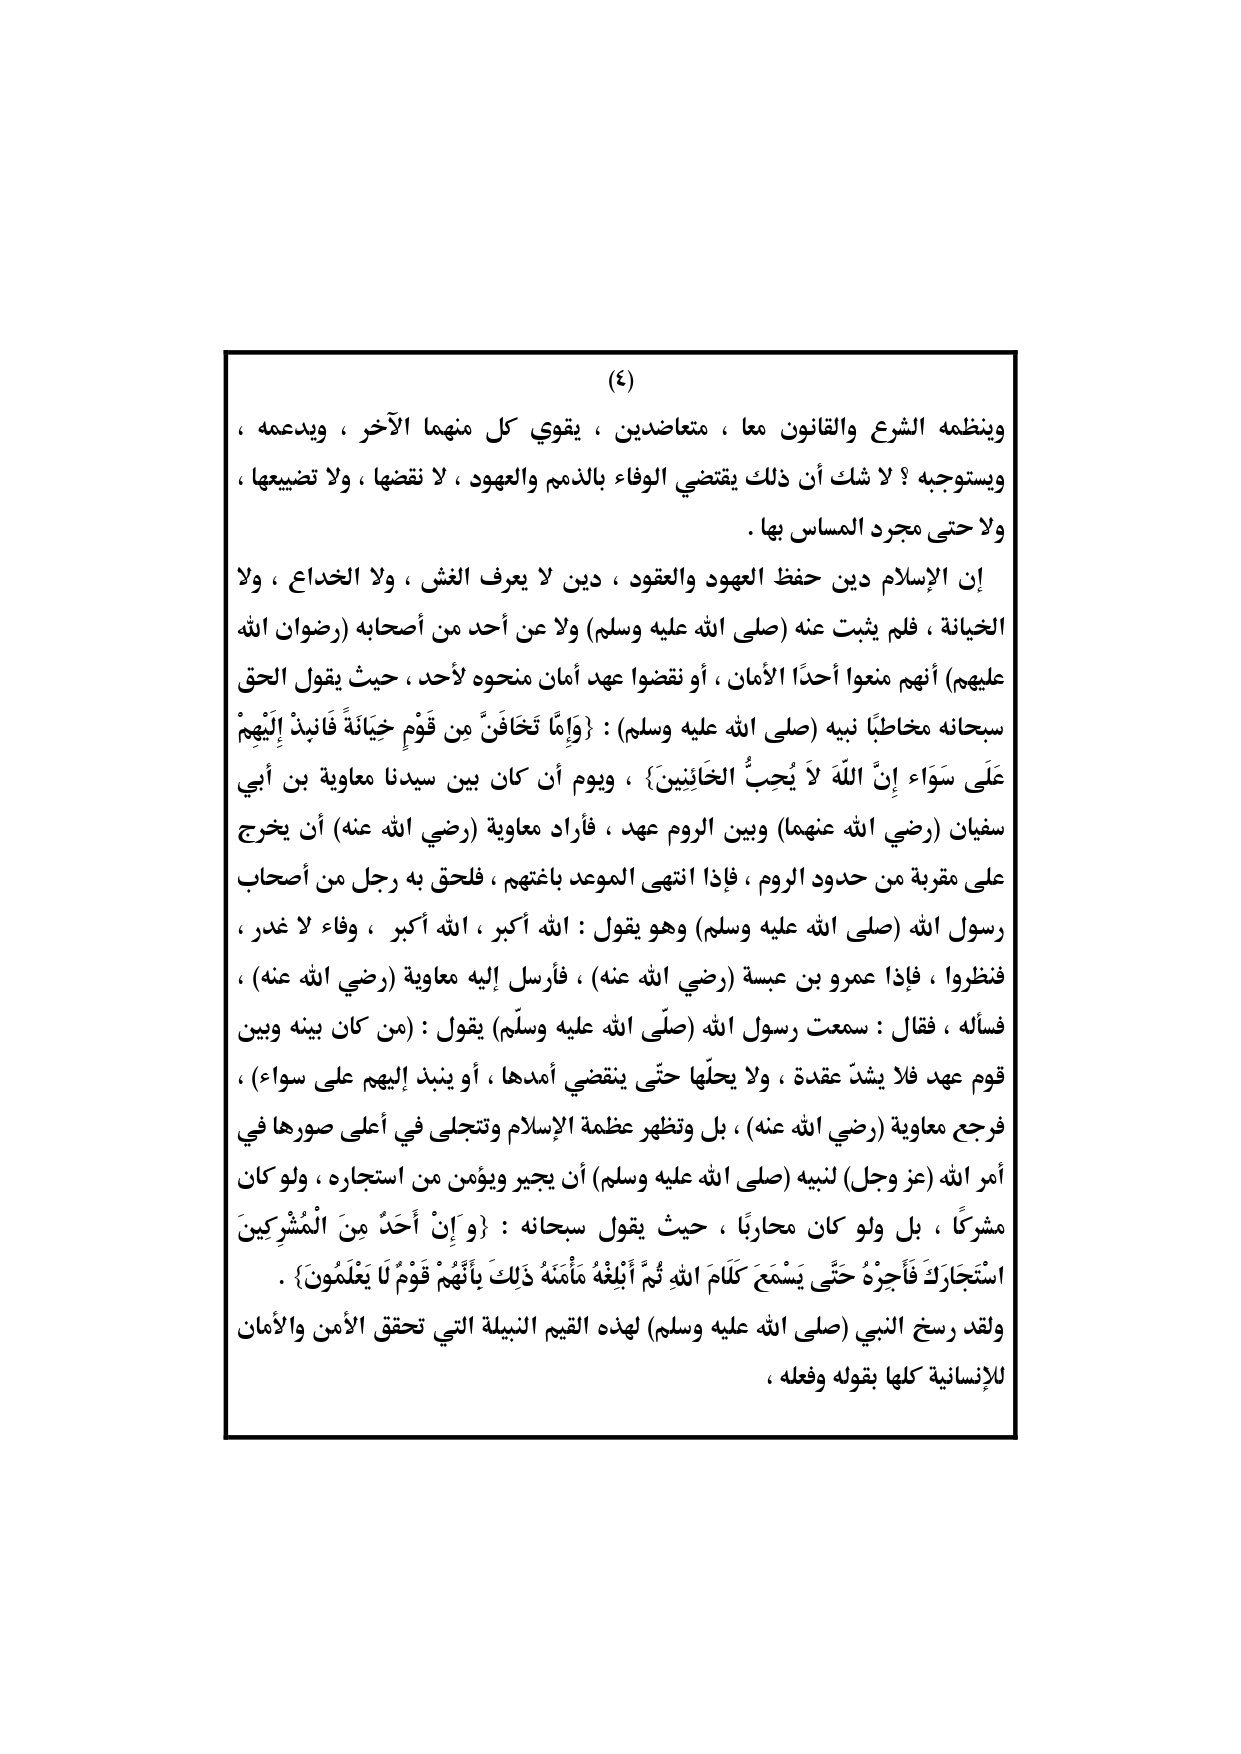 (٤)
وينظمه الشرع والقانون معا ، متعاضدين ، يقوي كل منهما الآخر ، ويدعمه ،
ويستوجبه ؟ لا شك أن ذلك يقتضي الوفاء بالذمم والعهود ، لا نقضها ، ولا تضييعها ،
ولا حتى مجرد المساس بها .
إن الإسلام دين حفظ العهود والعقود ، دين لا يعرف الغش ، ولا الخداع ، ولا
الخيانة ، فلم يثبت عنه (صلى الله عليه وسلم) ولا عن أحد من أصحابه (رضوان الله
عليهم) أنهم منعوا أحدًا الأمان ، أو نقضوا عهد أمان منحوه لأحد ، حيث يقول الحق
سبحانه مخاطبًا نبيه (صلى الله عليه وسلم) : {وَإِمَّا تَخَافَنَّ مِن قَوْمٍ خِيَانَةً فَانبِذْ إِلَيْهِمْ
عَلَى سَوَاء إِنَّ اللّهَ لاَ يُحِبُّ الخَائِنِينَ} ، ويوم أن كان بين سيدنا معاوية بن أبي
سفيان (رضي الله عنهما) وبين الروم عهد ، فأراد معاوية (رضي الله عنه) أن يخرج
على مقربة من حدود الروم ، فإذا انتهى الموعد باغتهم ، فلحق به رجل من أصحاب
رسول الله (صلى الله عليه وسلم) وهو يقول : الله أكبر ، الله أكبر ، وفاء لا غدر ،
فنظروا ، فإذا عمرو بن عبسة (رضي الله عنه) ، فأرسل إليه معاوية (رضي الله عنه) ،
فسأله ، فقال : سمعت رسول الله (صلّى الله عليه وسلّم) يقول : (من كان بينه وبين
قوم عهد فلا يشدّ عقدة ، ولا يحلّها حتّى ينقضي أمدها ، أو ينبذ إليهم على سواء) ،
فرجع معاوية (رضي الله عنه) ، بل وتظهر عظمة الإسلام وتتجلى في أعلى صورها في
أمر الله (عز وجل) لنبيه (صلى الله عليه وسلم) أن يجير ويؤمن من استجاره ، ولو كان
مشركًا ، بل ولو كان محاربًا ، حيث يقول سبحانه : {و َإِنْ أَحَدٌ مِنَ الْمُشْرِكِينَ
اسْتَجَارَكَ فَأَجِرْهُ حَتَّى يَسْمَعَ كَلَامَ اللهِ ثُمَّ أَبْلِغْهُ مَأْمَنَهُ ذَلِكَ بِأَنَّهُمْ قَوْمٌ لَا يَعْلَمُونَ} .
ولقد رسخ النبي (صلى الله عليه وسلم) لهذه القيم النبيلة التي تحقق الأمن والأمان
للإنسانية كلها بقوله وفعله ،